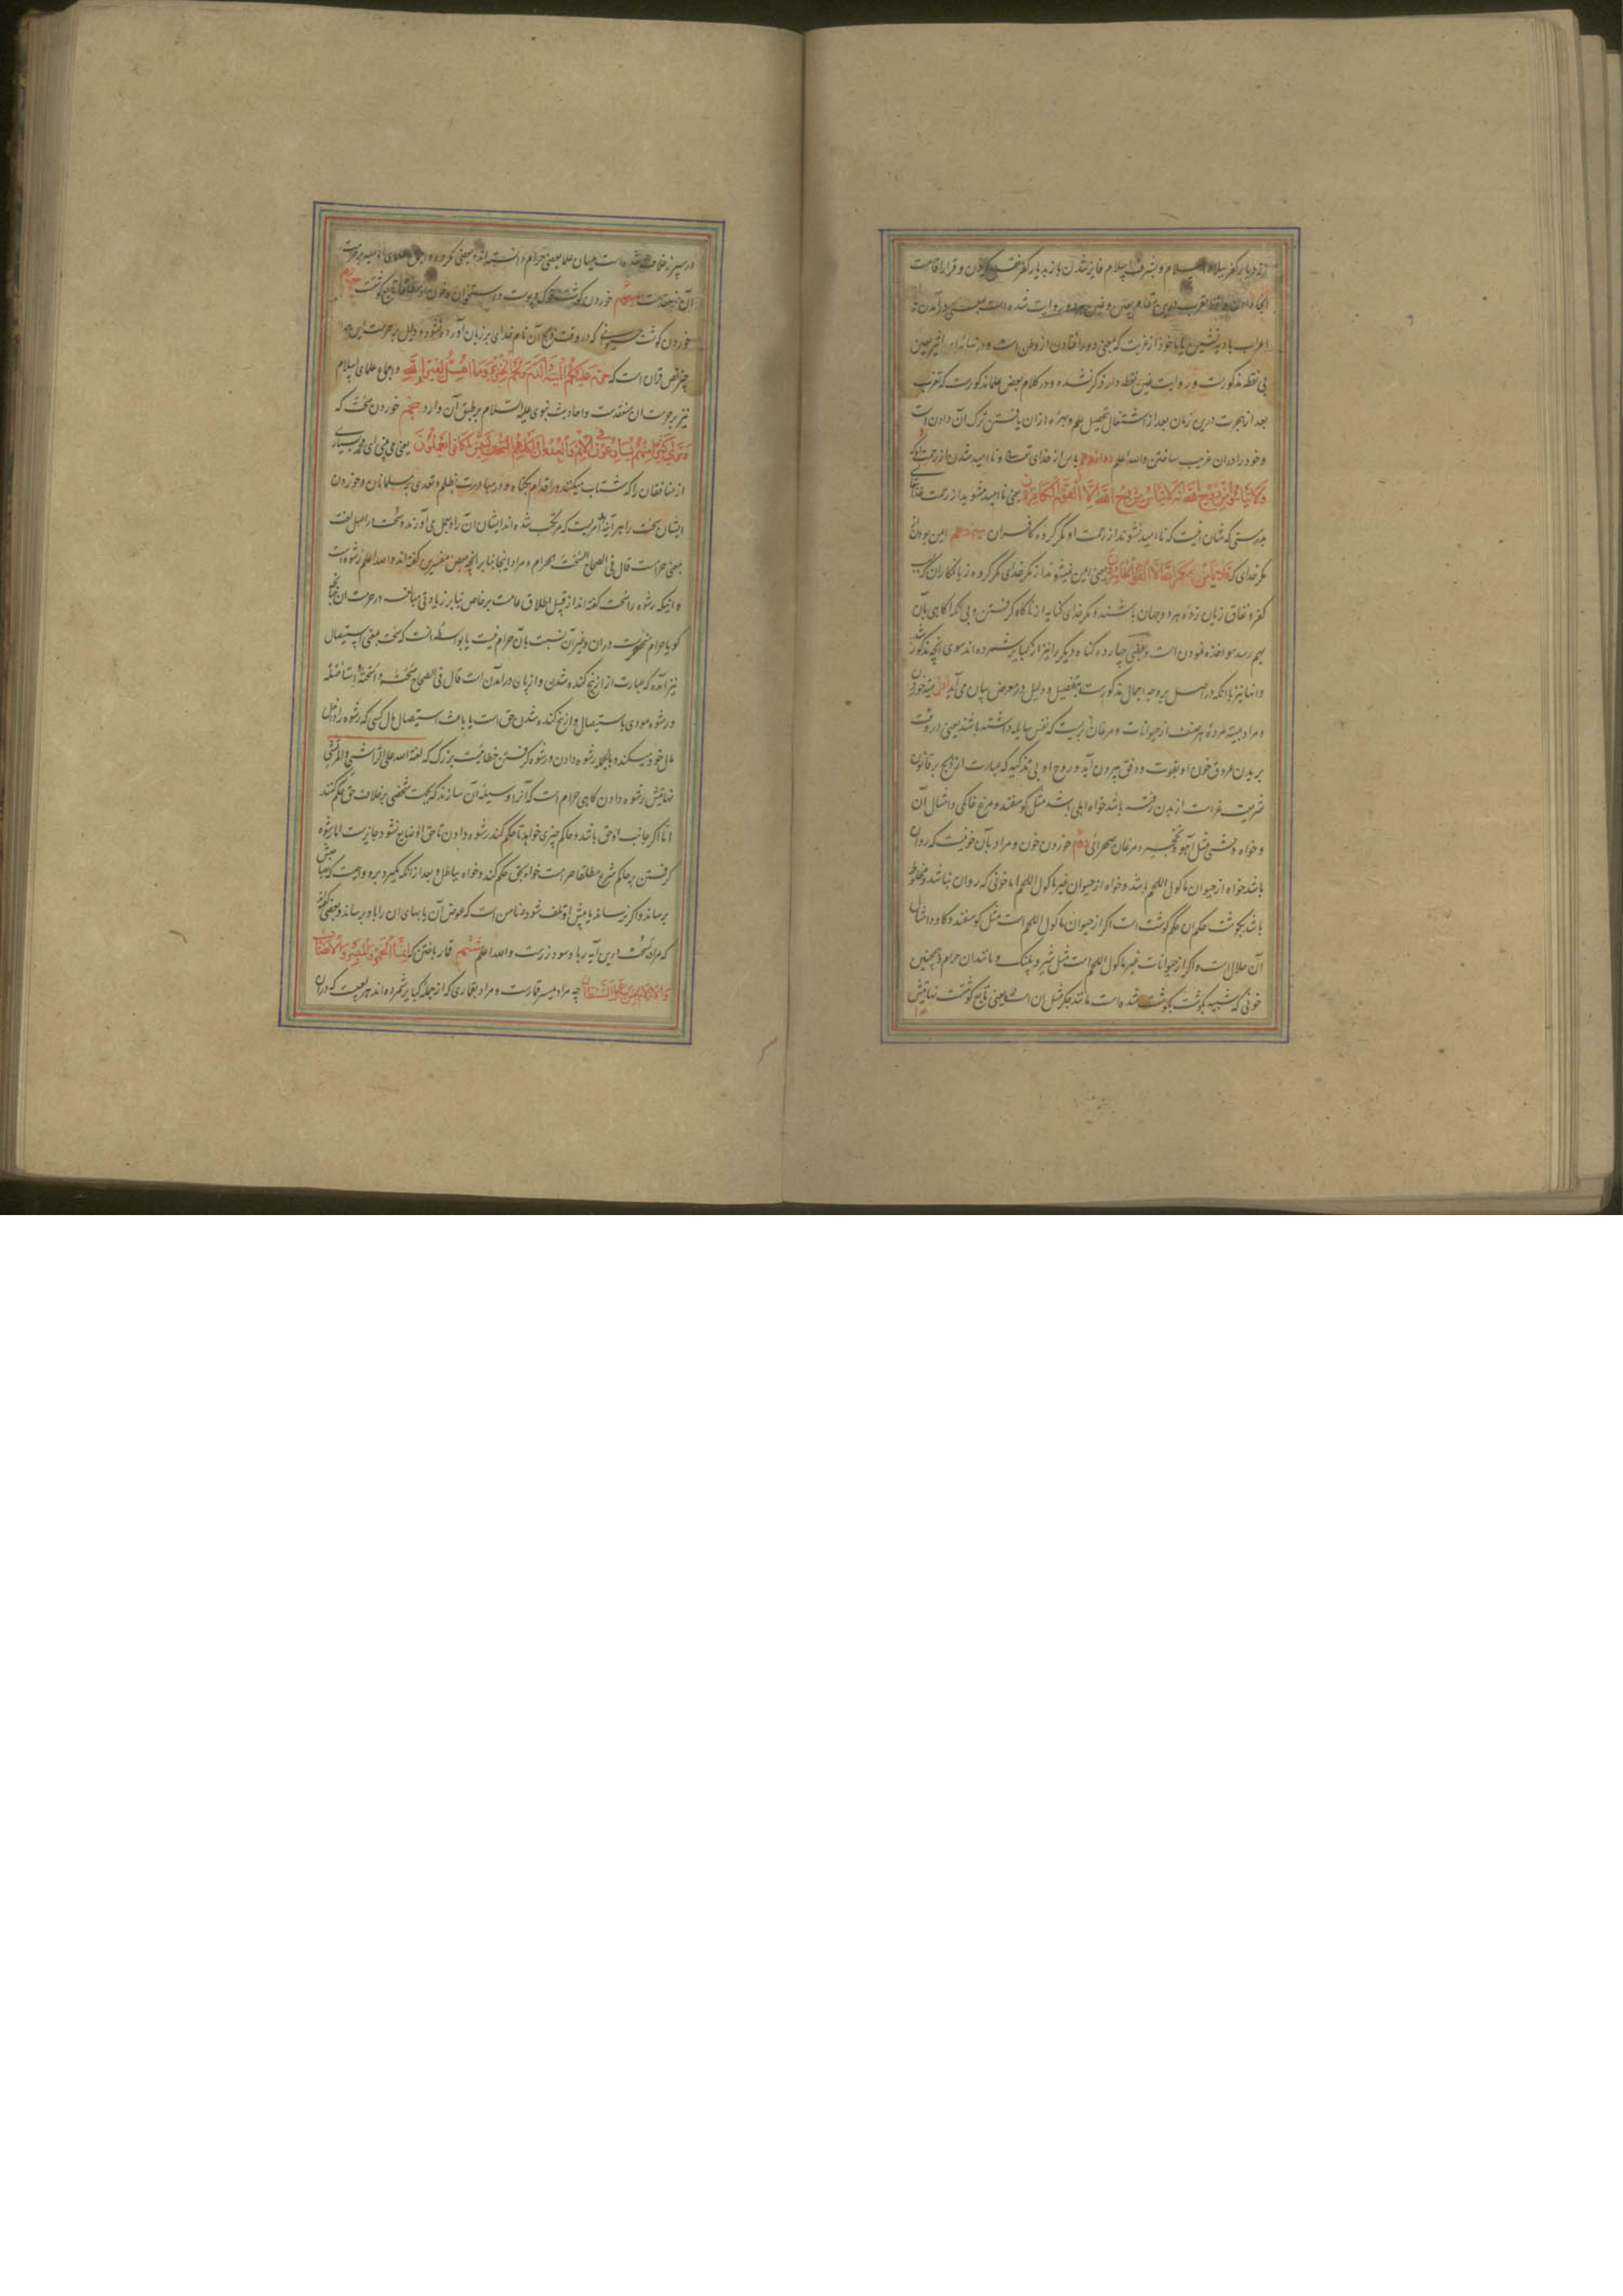 از دیار کفر ببلاد اسلام و بشرف اسلام فایز شدن باز بدیار کفر نقل کردن و قرار اقامت
آنجا دادن و لفظ تعرب درین مقام بعین و غین هر دو روایت شده است بمعنی در آمدن با
اعراب بادیه نشین یا ماخوذ از غربت که بمعنی دور افتادن از وطن است و در نهایه ابن اثیر بعین
بی نقطه مذکورست و روایت غین نقطه دار ذکر نشده و در کلام بعض علما مذکورست که تعرب
بعد از هجرت درین زمان بعد از اشتغال تحصیل علم و بهره ازان یافتن ترک آن دادن است
و خود را دران غریب ساختن والله اعلم دوازدهم یاس از خدای تعالی و ناامید شدن از رحمت او که
وَلَا تَيْأَسُوا مِنْ رَوْحِ اللَّهِ إِنَّهُ لَا يَيْأَسُ مِنْ رَوْحِ اللَّهِ إِلَّا الْقَوْمُ الْكَافِرُونَ یعنی ناامید مشوید از رحمت خدای
بدرستی که شان نیست که ناامید نشوند از رحمت او مگر گروه کافران سیزدهم ایمن بودن از
مکر خدای که فَلَا يَأْمَنُ مَكْرَ اللَّهِ إِلَّا الْقَوْمُ الْخَاسِرُونَ یعنی ایمن نمیشوند از مکر خدای مگر گروه زیانکاران که بسبب
کفر و نفاق زیان زدهٔ هر دو جهان باشند و مکر خدای کنایه از ناگاه گرفتن و بی آنکه آگاهی بآن
بهم رسد مواخذه نمودن است و بعضی چهارده گناه دیگر را نیز از کبایر شمرده اند سوی آنچه مذکور شد
و انها نیز با آنکه در اصل بر وجه اجمال مذکورست بتفصیل و دلیل در معرض بیان می آید اول میته خوردن
و مراد بمیته مردهٔ هر صنف از حیوانات و مرغانیست که نفس سایله داشته باشد یعنی در وقت
بریدن عروق خون او بقوت و دفق بیرون آید و روح او بی تذکیه که عبارت از ذبح بر قانون
شریعت غراست از بدن رفته باشد خواه اهلی باشد مثل گوسفند و مرغ خانگی و امثال آن
و خواه وحشی مثل آهو و نخجیر و مرغان صحرائی دوم خوردن خون و مراد بآن خونیست که روان
باشد خواه از حیوان ماکول اللحم باشد و خواه از حیوان غیر ماکول اللحم اما خونی که روان نباشد و مخلوط
باشد بگوشت حکم آن حکم گوشت است اگر از حیوان ماکول اللحم است مثل گوسفند و گاو و امثال
آن حلال است و اگر از حیوانات غیر ماکول اللحم است مثل شیر و پلنگ و مانند ان حرام و همچنین
خونی که شبیه بگوشت بگوشت شده است مانند جگر مثل آن است یعنی تابع گوشت نهایتش
در سپرز خلاف شده است میان علما بعضی حرام دانسته اند و بعضی مکروه و اجماع علمای امامیه بر حرمت
آن منعقدست سیم خوردن گوشت خوک و پوست و استخوان و خون او مطلقا تابع گوشت چهارم
خوردن گوشت حیوانی که در وقت ذبح آن نام خدای بر زبان آورده نشود و دلیل بر حرمت این
چیز نص قران است که حُرِّمَتْ عَلَيْكُمُ الْمَيْتَةُ وَالدَّمُ وَلَحْمُ الْخِنْزِيرِ وَمَا أُهِلَّ لِغَيْرِ اللَّهِ و اجماع علمای اسلام
نیز بر حرمت ان منعقدست و احادیث نبوی علیه السلام بر طبق آن وارد پنجم خوردن سحت که
وَتَرَى كَثِيرًا مِنْهُمْ يُسَارِعُونَ فِي الْإِثْمِ وَالْعُدْوَانِ وَأَكْلِهِمُ السُّحْتَ لَبِئْسَ مَا كَانُوا يَعْمَلُونَ یعنی می بینی ای محمد بسیاری
از منافقان را که شتاب میکنند در اقدام بگناه و در مبادرت بظلم و تعدی بر مسلمانان و خوردن
ایشان سحت را هر آینه بد امریست که مرتکب شده اند ایشان آن را و بعمل می آورند و سحت در اصل لغت
بمعنی حرامست قال فی الصحاح السحت الحرام و مراد اینجا بنا بر آنچه بعض مفسرین گفته اند والله اعلم رشوه است
و اینکه رشوه را سحت گفته اند از قبیل اطلاق عامست بر خاص بنا بر زیادتی مبالغه در حرمت ان چنانچه
گویا حرام منحصرست دران و غیر آن نسبت بآن حرام نیست یا بواسطه آنست که سحت بمعنی استیصال
نیز آمده که عبارت از از بیخ کنده شدن و از پا در آمدن است قال فی الصحاح سحته و اسحته ای استاصله
و رشوه مودی باستیصال و از بیخ کنده شدن حق است یا باعث استیصال مال کسی که رشوه را داخل
مال خود میکند و بالجمله رشوه دادن و رشوه گرفتن خطائیست بزرگ که لعنة الله علی الراشی والمرتشی
نهایتش رشوه دادن گاهی حرام است که آنرا وسیلهٔ آن سازند که بجهت شخصی بر خلاف حق حکم کنند
اما اگر جانب او حق باشد و حاکم چیزی خواهد تا حکم کند رشوه دادن تا حق او ضایع نشود جایزست اما رشوه
گرفتن بر حاکم شرع مطلقا حرامست خواه بحق حکم کند و خواه بباطل و بعد از آنکه بگیرد برو واجبست که بصاحبش
برساند و اگر نرساند یا پیش او تلف شود ضامن است که عوض آن یا بهای ان را باو برساند و بعضی گفته اند
که مراد بسحت درین آیه ربا و سود زرست والله اعلم ششم قمار باختن که إِنَّمَا الْخَمْرُ وَالْمَيْسِرُ وَالْأَنْصَابُ
وَالْأَزْلَامُ رِجْسٌ مِنْ عَمَلِ الشَّيْطَانِ چه مراد میسر قمارست و مراد بقماری که از جمله کبایر شمرده اند هر لعبیست که دران